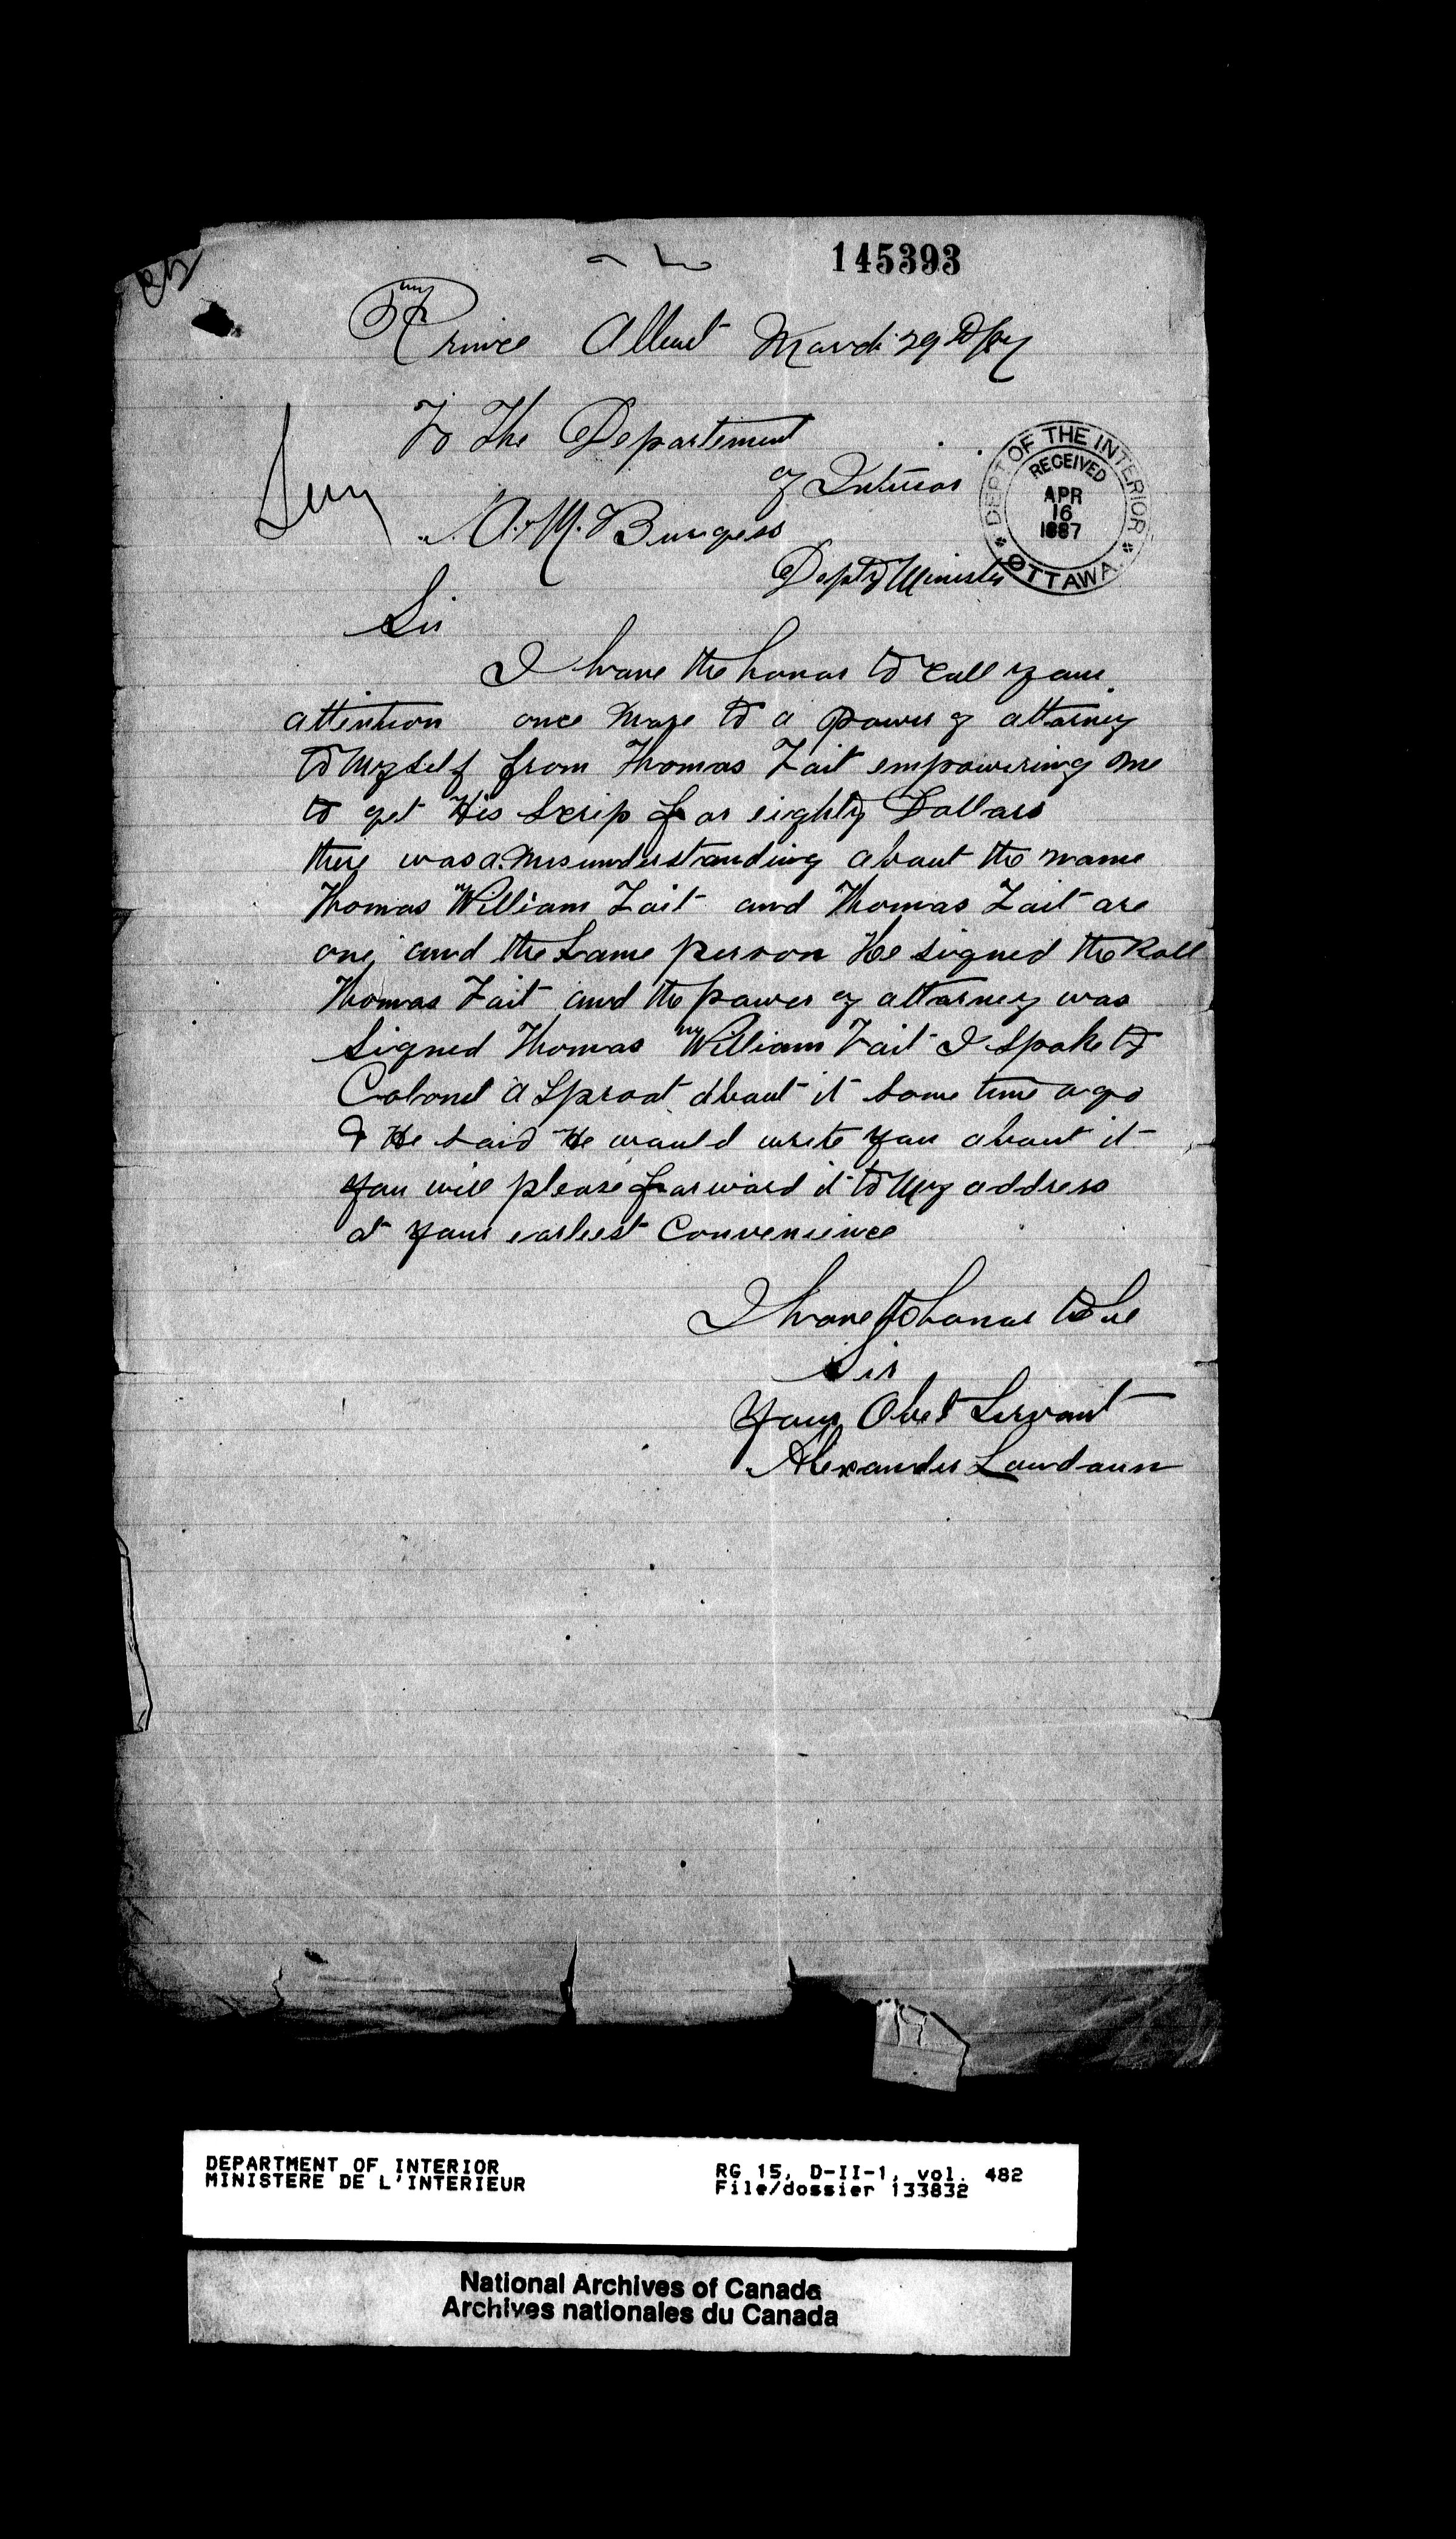 145393
Prince Albert March 29th /87
To The Departement
of Interior
A. M. Burgess
Depty Minister
DEPT OF THE INTERIOR
RECEIVED
APR
16
1887
OTTAWA
Sir
I have the honor to call your
attention once more to a power of attorney
to myself from Thomas Tait empowering me
to get His Scrip for eighty Dollars
there was a misunderstanding about the name
Thomas William Tait and Thomas Tait are
one and the same person He signed the Roll
Thomas Tait and the power of attorney was
Signed Thomas William Tait I spoke to
Colonel A Sproat about it some time ago
& He said He would write you about it
you will please forward it to my address
at your earliest Convenience
I have the honor to be
Sir
Your Obet Servant
Alexander
DEPARTMENT OF INTERIOR
MINISTERE DE L'INTERIEUR
RG 15, D-II-1, vol. 482
File/dossier 133832
National Archives of Canada
Archives nationales du Canada